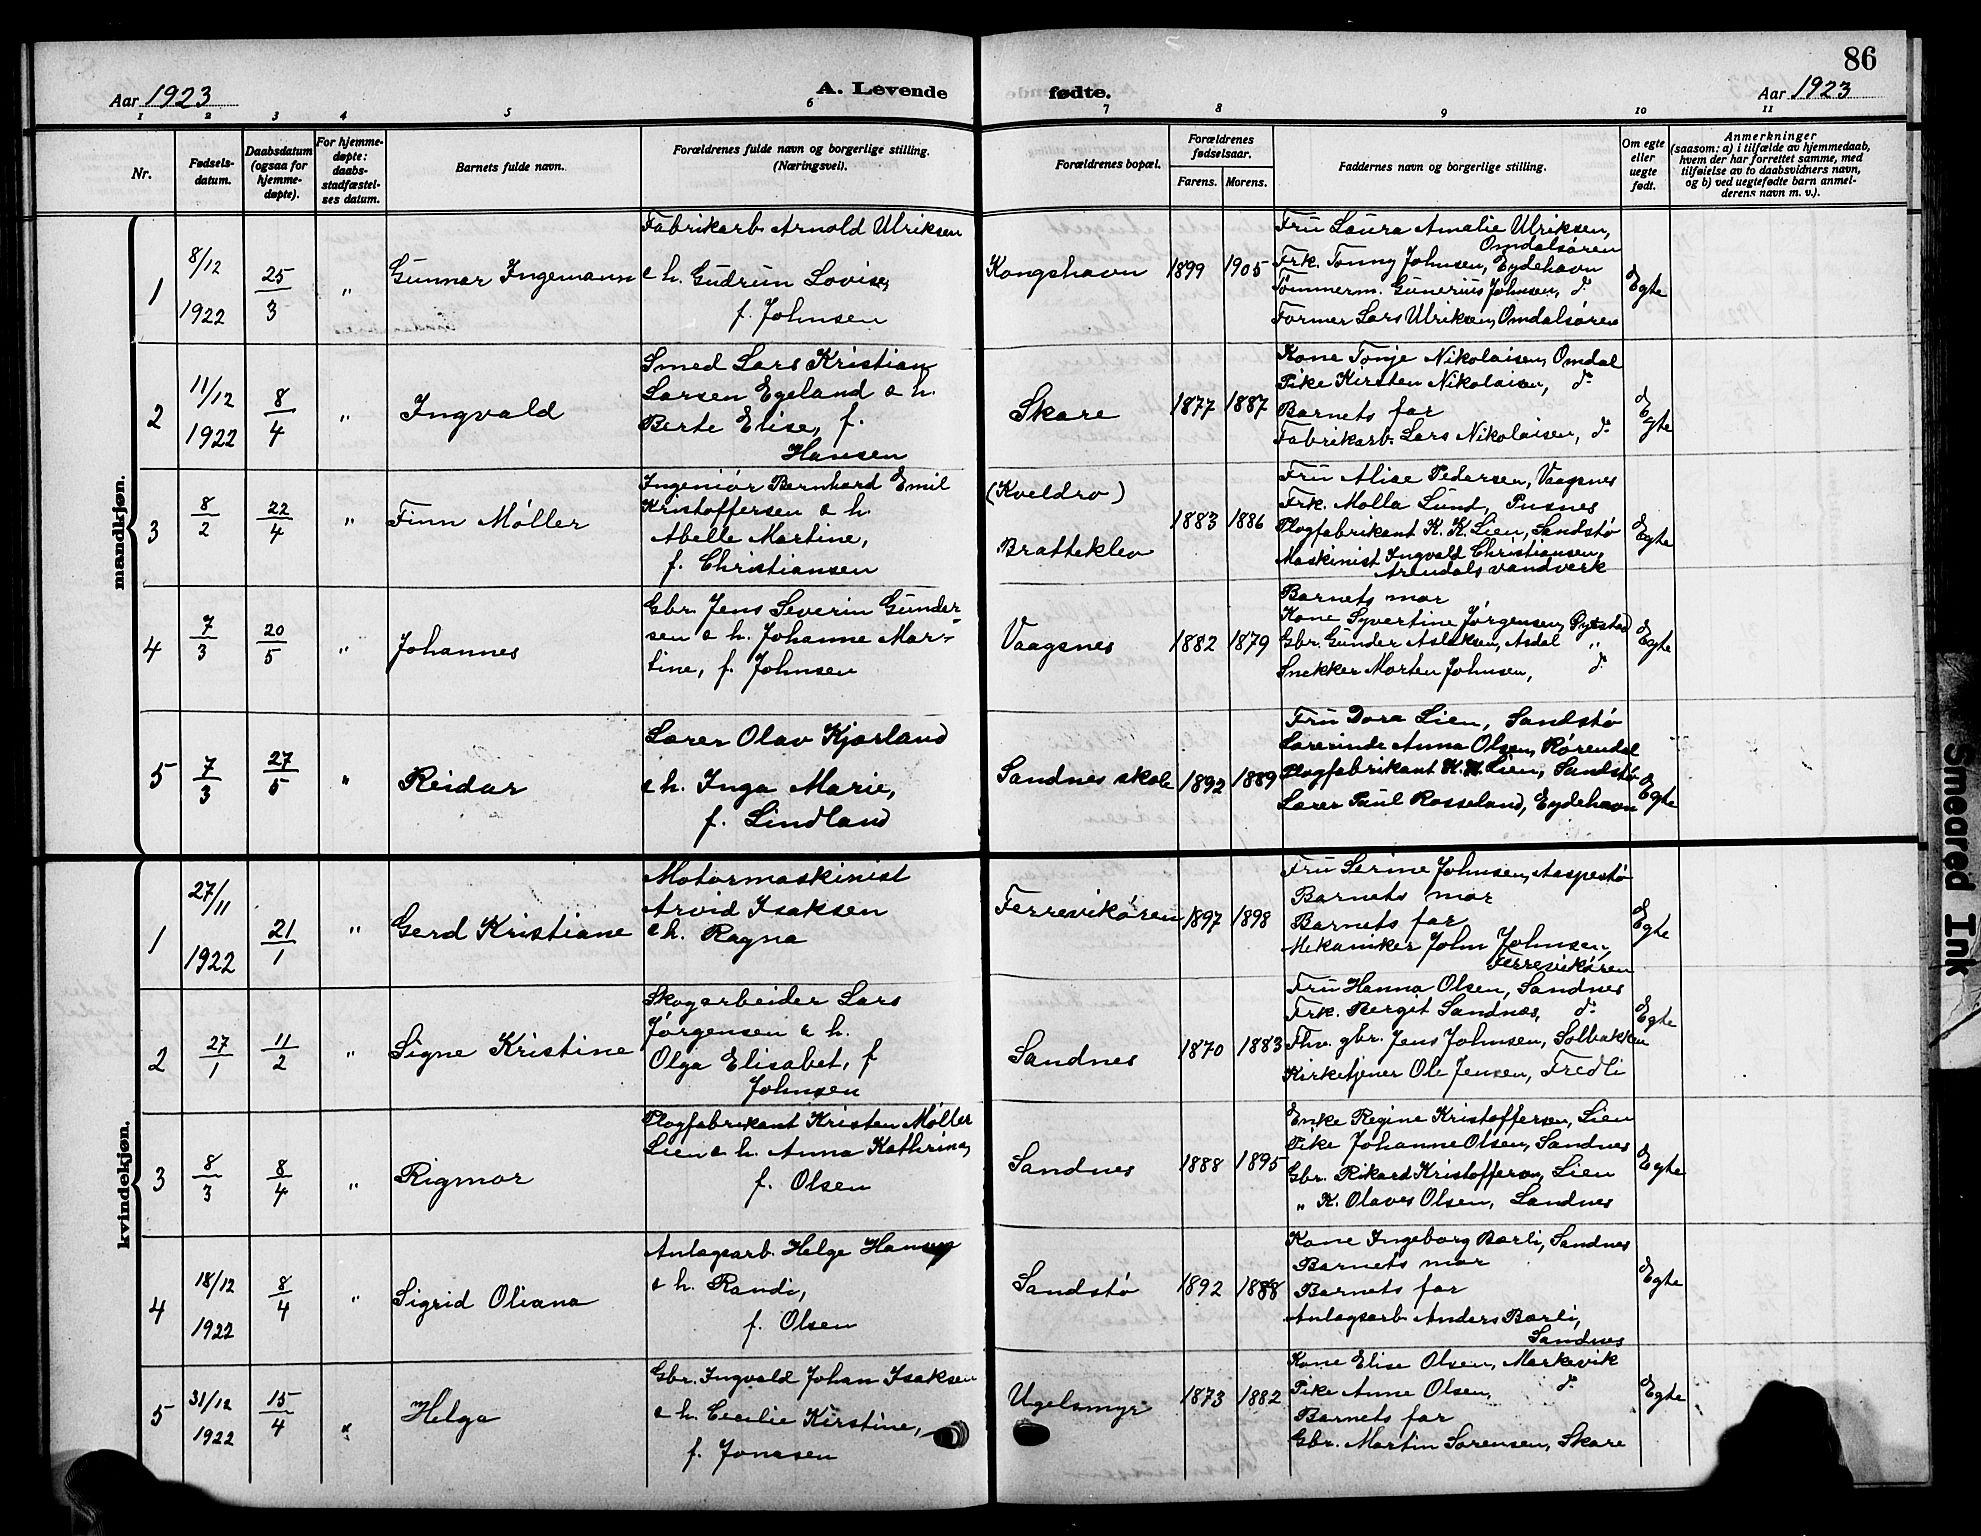 86
Aar 1923
A. Levende fødte.
Aar 1923
1 2 3 4 5 6 7 8 9 10 11
Nr.
Fødsels-
datum.
Daabsdatum
(ogsaa for
hjemme-
døpte).
For hjemme-
døpte:
daabs-
stadfæstel-
ses datum.
Barnets fulde navn.
Forældrenes fulde navn og borgerlige stilling.
(Næringsvei).
Forældrenes bopæl.
Forældrenes
fødselsaar.
Farens. Morens.
Faddernes navn og borgerlige stilling.
Om egte
eller
uegte
født.
Anmerkninger
(saasom: a) i tilfælde av hjemmedaab,
hvem der har forrettet samme, med
tilføielse av to daabsvidners navn,
og b) ved uegtefødte barn anmel-
derens navn m. v.).
mandkjøn.
1
8/12
1922
25/3
"
Gunnar Ingemann
Fabrikarb. Arnold Ulriksen
& h. Gudrun Lovise,
f. Johnsen
Kongshavn
1899
1905
Fru Laura Amalie Ulriksen,
Omdalsøren
Frk. Tonny Johnsen, Eydehavn
Tømmerm. Gunerius Johnsen, do
Former Lars Ulriksen, Omdalsøren
Egte
2
11/12
1922
8/4
"
Ingvald
Smed Lars Kristian
Larsen Egeland & h.
Berte Elise, f.
Hansen
Skare
1877
1887
Kone Tonje Nikolaisen, Omdal
Pike Kirsten Nikolaisen, do
Barnets far
Fabrikarb. Lars Nikolaisen, do
Egte
3
8/2
22/4
"
Finn Møller
Ingeniør Bernhard Emil
Kristoffersen & h.
Abelle Martine,
f. Christiansen
(Kveldro)
Bratteklev
1883
1886
Fru Alise Pedersen, Vaagsnes
Frk. Molla Lund, Pusnes
Plogfabrikant K. K. Lien, Sandstø
Maskinist Ingvald Christiansen,
Arendals vandverk
Egte
4
7/3
20/5
"
Johannes
Gbr. Jens Severin Gunder-
sen & h. Johanne Mar-
tine, f. Johnsen
Vaagsnes
1882
1879
Barnets mor
Kone Syvertine Jørgensen,
Gbr. Gunder Aslaksen, Asdal "
Snekker Morten Johnsen, do
Egte
5
7/3
27/5
"
Reidar
Lærer Olav Kjørland
& h. Inga Marie,
f. Lindland
Sandnes skole
1892
1889
Fru Dora Lien, Sandstø
Lærerinde Anna Olsen, Rørendal
Plogfabrikant K. K. Lien, Sandstø
Lærer Paul Rosseland, Eydehavn
Egte
kvindekjøn.
1
27/11
1922
21/1
"
Gerd Kristiane
Motormaskinist
Arvid Isaksen
& h. Ragna
Ferrevikøren
1897
1898
Fru Serine Johnsen, Aaspestø
Barnets mor
Barnets far
Mekaniker John Johnsen,
Ferrevikøren
Egte
2
27/1
11/2
"
Signe Kristine
Skogarbeider Lars
Jørgensen & h.
Olga Elisabet, f
Johnsen
Sandnes
1870
1883
Fru Hanna Olsen, Sandnes
Frk. Bergit Sandnes, do
Fhv. gbr. Jens Johnsen, Solbakken
Kirketjener Ole Jensen, Fredli
Egte
3
8/3
8/4
"
Rigmor
Plogfabrikant Kristen Møller
Lien & h. Anna Kathrine,
f. Olsen
Sandnes
1888
1895
Enke Regine Kristoffersen, Lien
Pike Johanne Olsen, Sandnes
Gbr. Rikard Kristoffersen, Lien
" K. Olaves Olsen, Sandnes
Egte
4
18/12
1922
8/4
"
Sigrid Oliana
Anlagsarb. Helge Hansen
& h. Randi,
f. Olsen
Sandstø
1892
1888
Kone Ingeborg Barli, Sandnes
Barnets mor
Barnets far
Anlagsarb. Anders Barli,
Sandnes
Egte
5
31/12
1922
15/4
"
Helga
Gbr. Ingvald Johan Isaksen
& h. Cecilie Kirstine,
f. Jonassen
Ugelsmyr
1873
1882
Kone Elise Olsen, Markevik
Pike Anne Olsen, do
Barnets far
Gbr. Martin Sørensen, Skare
Egte
Smeared Ink